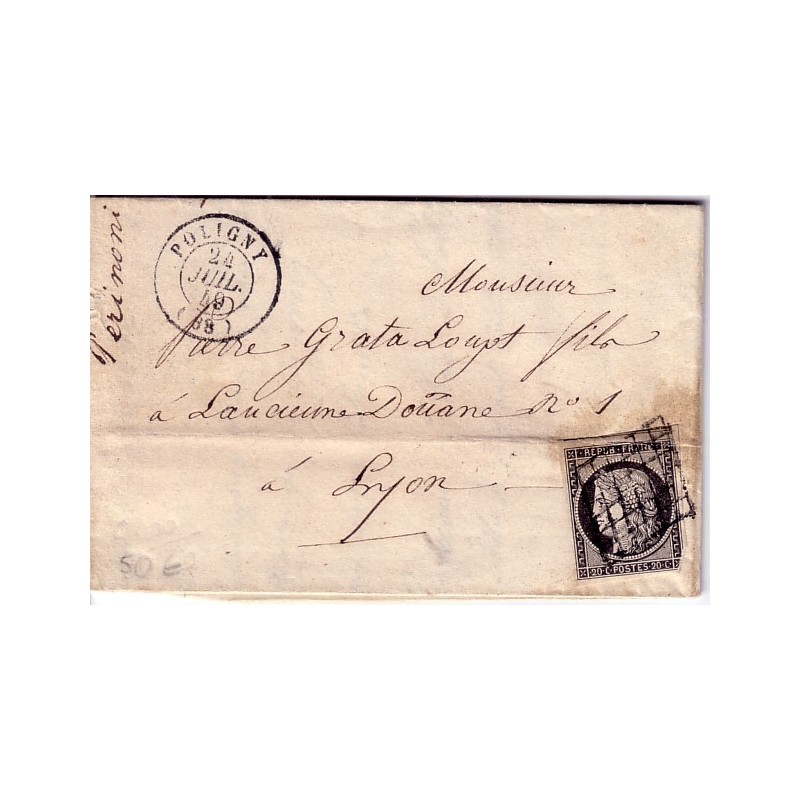 Perinoni
POLIGNY
24
JUIL.
49
(38)
Monsieur
Pierre Grataloupt fils
à Lancienne Douâne No 1
à Lyon
REPUB. FRANC.
20·C·POSTES·20·C
50 €